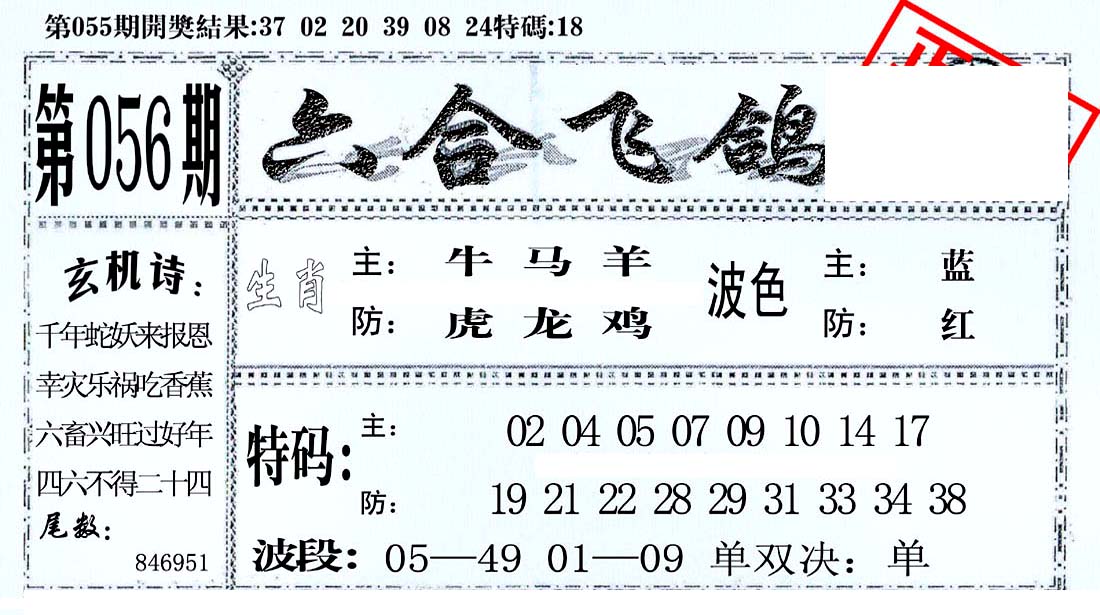 第055期開獎結果:37 02 20 39 08 24特碼:18
第056期
六合飞鸽
玄机诗：
千年蛇妖来报恩
幸灾乐祸吃香蕉
六畜兴旺过好年
四六不得二十四
尾数：
846951
生肖
主： 牛 马 羊
防： 虎 龙 鸡
波色
主： 蓝
防： 红
特码：
主： 02 04 05 07 09 10 14 17
防： 19 21 22 28 29 31 33 34 38
波段：05—49 01—09 单双决：单